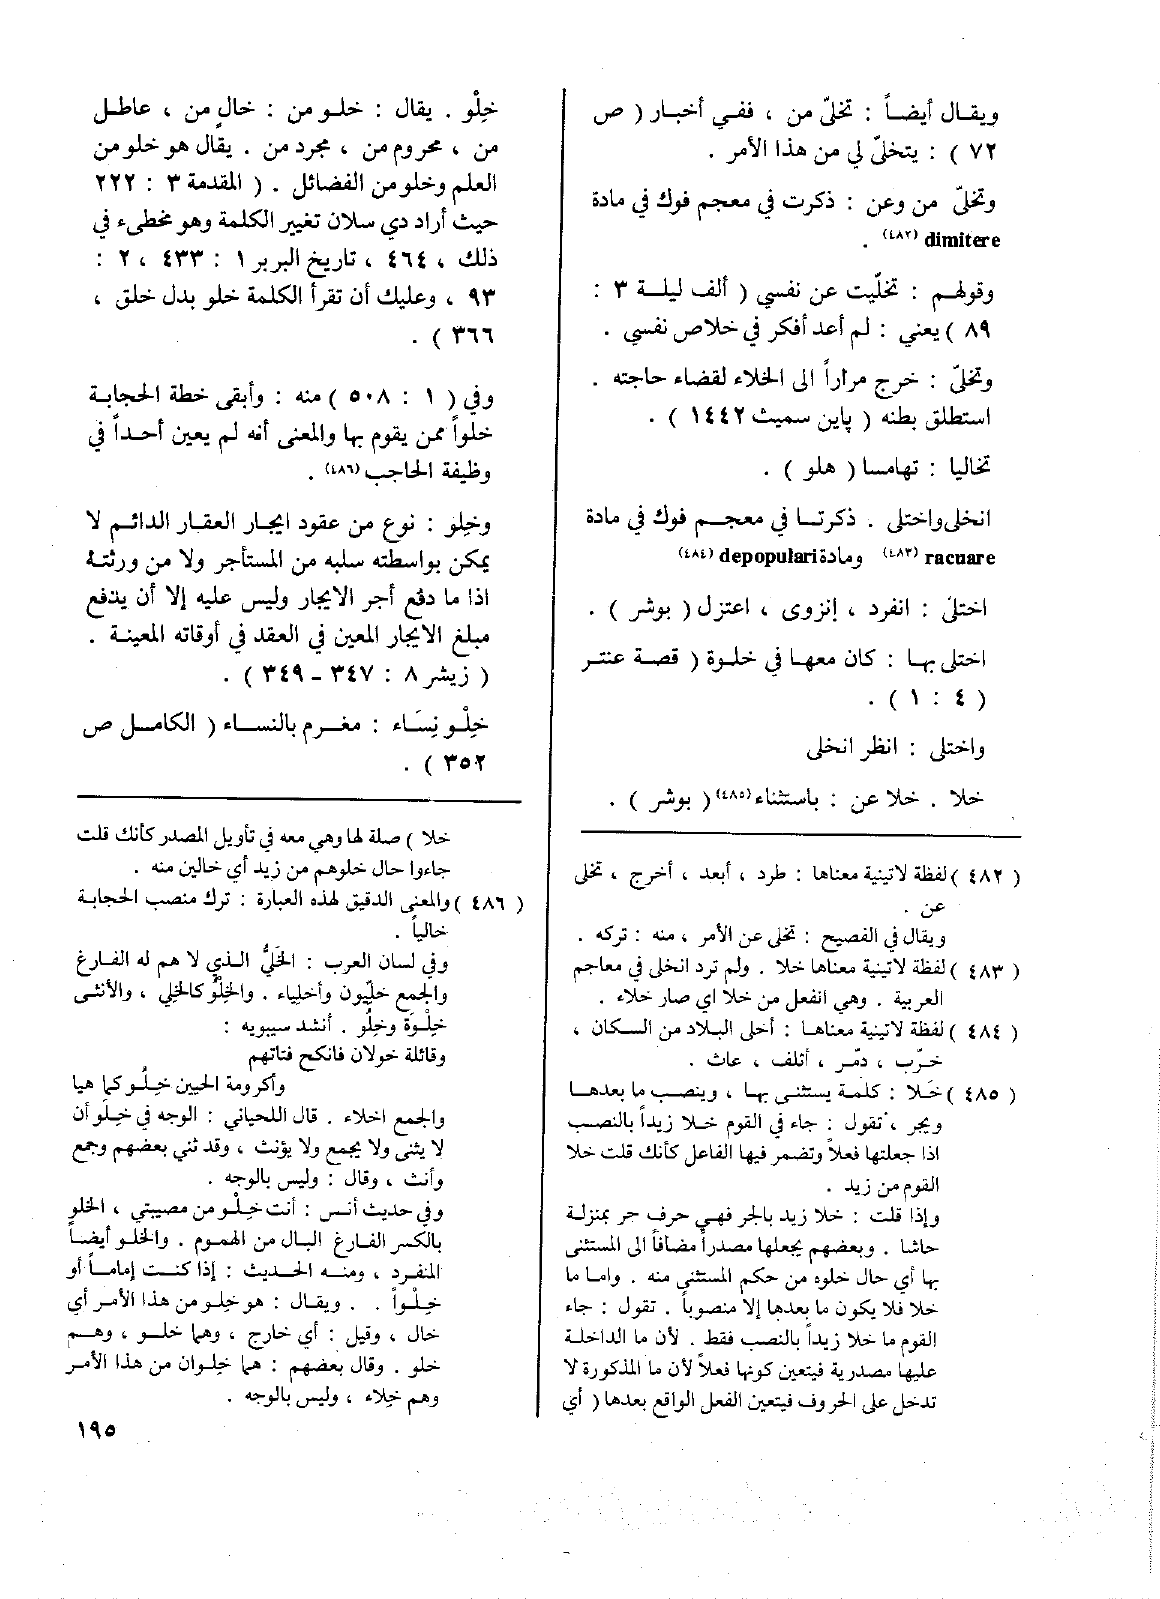 ويقال أيضاً : تخلّى من ، ففي أخبار ( ص
٧٢ ) : يتخلّى لي من هذا الأمر .
وتخلّى من وعن : ذكرت في معجم فوك في مادة
dimitere (٤٨٢) .
وقولهم : تخلّيت عن نفسي ( ألف ليلة ٣ :
٨٩ ) يعني : لم أعد أفكر في خلاص نفسي .
وتخلّى : خرج مراراً الى الخلاء لقضاء حاجته .
استطلق بطنه ( پاين سميث ١٤٤٢ ) .
تخاليا : تهامسا ( هلو ) .
انخلى واختلى . ذكرتا في معجم فوك في مادة
racuare (٤٨٣) ومادة depopulari (٤٨٤)
اختلى : انفرد ، إنزوى ، اعتزل ( بوشر ) .
اختلى بها : كان معها في خلوة ( قصة عنتر
( ٤ : ١ ) .
واختلى : انظر انخلى
خلا . خلا عن : باستثناء (٤٨٥) ( بوشر ) .
( ٤٨٢ ) لفظة لاتينية معناها : طرد ، أبعد ، أخرج ، تخلى
عن .
ويقال في الفصيح : تخلى عن الأمر ، منه : تركه .
( ٤٨٣ ) لفظة لاتينية معناها خلا . ولم ترد انخلى في معاجم
العربية . وهي انفعل من خلا اي صار خلاء .
( ٤٨٤ ) لفظة لاتينية معناها : أخلى البلاد من السكان ،
خرّب ، دمّر ، أتلف ، عاث .
( ٤٨٥ ) خَلا : كلمة يستثنى بها ، وينصب ما بعدها
ويجر ، تقول : جاء في القوم خلا زيداً بالنصب
اذا جعلتها فعلاً وتضمر فيها الفاعل كأنك قلت خلا
القوم من زيد .
وإذا قلت : خلا زيد بالجر فهي حرف جر بمنزلة
حاشا . وبعضهم يجعلها مصدراً مضافاً الى المستثنى
بها أي حال خلوه من حكم المستثنى منه . واما ما
خلا فلا يكون ما بعدها إلا منصوباً . تقول : جاء
القوم ما خلا زيداً بالنصب فقط . لأن ما الداخلة
عليها مصدرية فيتعين كونها فعلاً لأن ما المذكورة لا
تدخل على الحروف فيتعين الفعل الواقع بعدها ( أي
خِلْو . يقال : خلو من : خالٍ من ، عاطل
من ، محروم من ، مجرد من . يقال هو خلو من
العلم وخلو من الفضائل . ( المقدمة ٣ : ٢٢٢
حيث أراد دي سلان تغيير الكلمة وهو مخطىء في
ذلك ، ٤٦٤ ، تاريخ البربر ١ : ٤٣٣ ، ٢ :
٩٣ ، وعليك أن تقرأ الكلمة خلو بدل خلق ،
٣٦٦ ) .
وفي ( ١ : ٥٠٨ ) منه : وأبقى خطة الحجابة
خلواً ممن يقوم بها والمعنى أنه لم يعين أحداً في
وظيفة الحاجب (٤٨٦) .
وخِلو : نوع من عقود ايجار العقار الدائم لا
يمكن بواسطته سلبه من المستأجر ولا من ورثتة
اذا ما دفع أجر الايجار وليس عليه إلا أن يدفع
مبلغ الايجار المعين في العقد في أوقاته المعينة .
( زيشر ٨ : ٣٤٧ - ٣٤٩ ) .
خِلْو نِسَاء : مغرم بالنساء ( الكامل ص
٣٥٢ ) .
خلا ) صلة لها وهي معه في تأويل المصدر كأنك قلت
جاءوا حال خلوهم من زيد أي خالين منه .
( ٤٨٦ ) والمعنى الدقيق لهذه العبارة : ترك منصب الحجابة
خالياً .
وفي لسان العرب : الخَلِيُّ الذي لا هم له الفارغ
والجمع خليّون وأخلياء . والخِلْوُ كالخلي ، والأنثى
خِلْوَة وخِلْو . أنشد سيبويه :
وقائلة خولان فانكح فتاتهم
وأكرومة الحيين خِلْو كما هيا
والجمع اخلاء . قال اللحياني : الوجه في خِلْو أن
لا يثنى ولا يجمع ولا يؤنث ، وقد ثني بعضهم وجمع
وأنث ، وقال : وليس بالوجه .
وفي حديث أنس : أنت خِلْو من مصيبتي ، الخلو
بالكسر الفارغ البال من الهموم . والخلو أيضاً
المنفرد ، ومنه الحديث : إذا كنت إماماً أو
خِلْواً . . ويقال : هو خلو من هذا الأمر أي
خال ، وقيل : أي خارج ، وهما خلو ، وهم
خلو . وقال بعضهم : هما خِلوان من هذا الأمر
وهم خلاء ، وليس بالوجه .
١٩٥